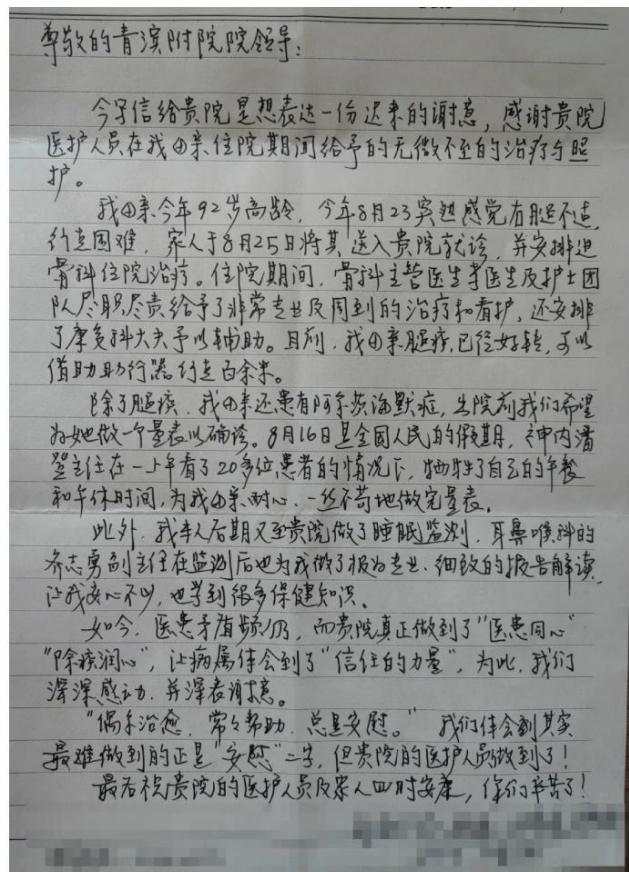 尊敬的青滨附院院领导：
今写信给贵院是想表达一份迟来的谢意，感谢贵院
医护人员在我母亲住院期间给予的无微不至的治疗与照
护。
我母亲今年92岁高龄，今年8月23突然感觉右腿不适，
行走困难，家人于8月25日将其送入贵院就诊，并安排进
骨科住院治疗。住院期间，骨科主管医生等医生及护士团
队尽职尽责给予了非常专业及周到的治疗和看护，还安排
了康复科大夫予以辅助。目前，我母亲腿疾已经好转，可以
借助助行器行走百余米。
除了腿疾，我母亲还患有阿尔茨海默症，出院前我们希望
为她做一个量表以确诊。9月16日是全国人民的假期，神内潘
主任在一上午看了20多位患者的情况下，牺牲了自己的午餐
和午休时间，为我母亲耐心、一丝不苟地做完量表。
此外，我本人后期又至贵院做了睡眠监测，耳鼻喉科的
齐志勇副主任在监测后也为我做了极为专业、细致的报告解读，
让我安心不少，也学到很多保健知识。
如今，医患矛盾频仍，而贵院真正做到了“医患同心”
“除疾润心”，让病属体会到了“信任的力量”，为此，我们
深深感动，并深表谢意。
“偶尔治愈，常常帮助，总是安慰。”我们体会到其实
最难做到的正是“安慰”二字，但贵院的医护人员做到了！
最后祝贵院的医护人员及家人四时安康，你们辛苦了！